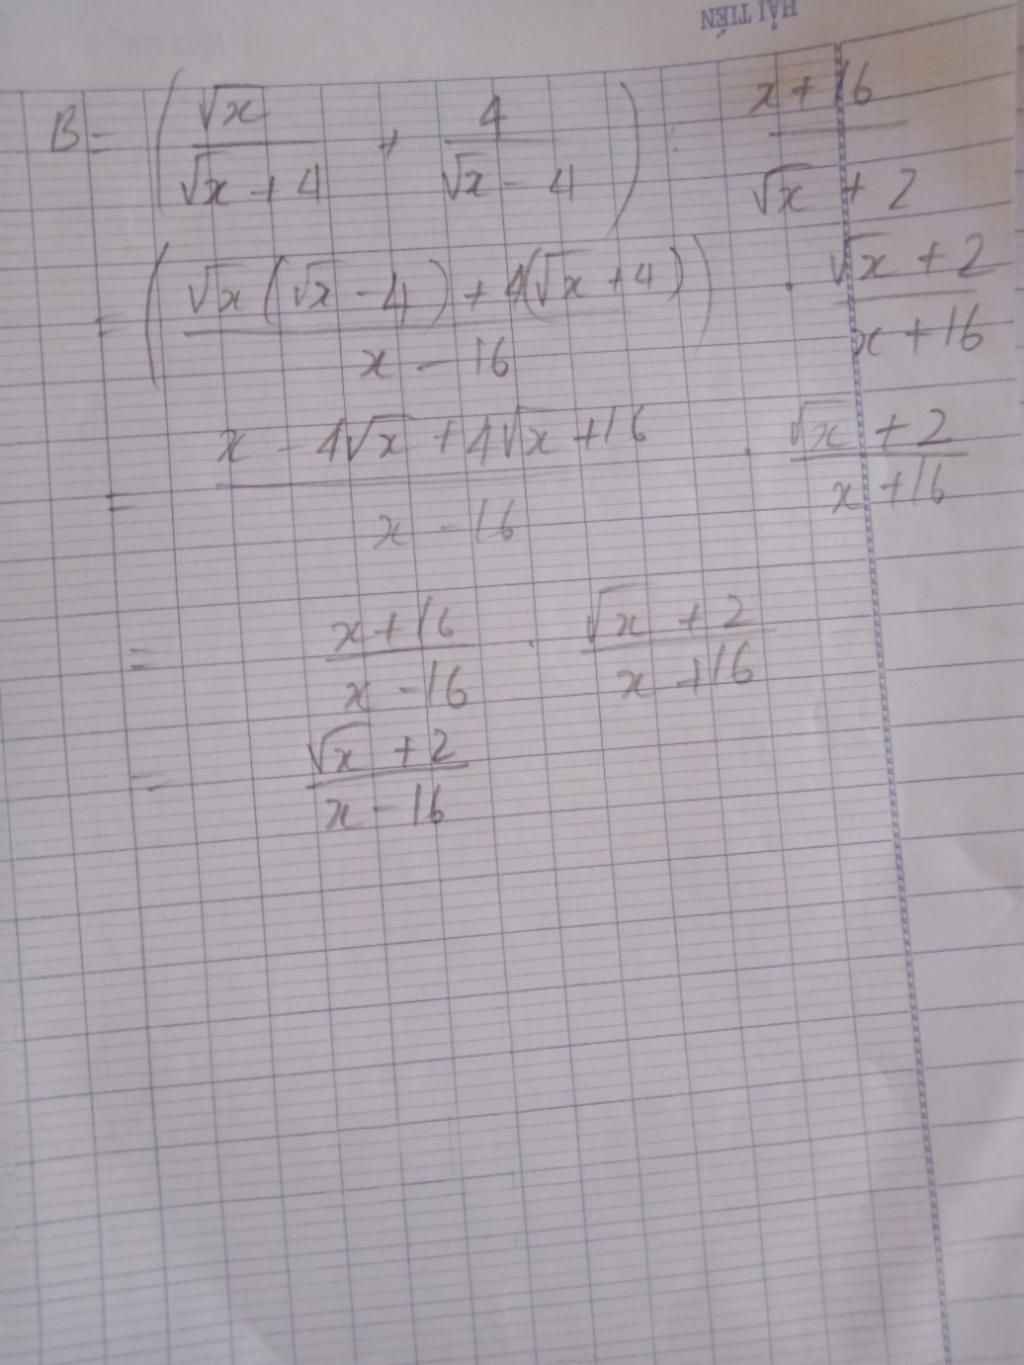 HẢI TIẾN
B = ( √x / (√x + 4) + 4 / (√x - 4) ) : (x + 16) / (√x + 2)
= ( (√x(√x - 4) + 4(√x + 4)) / (x - 16) ) . (√x + 2) / (x + 16)
= (x - 4√x + 4√x + 16) / (x - 16) . (√x + 2) / (x + 16)
= (x + 16) / (x - 16) . (√x + 2) / (x + 16)
= (√x + 2) / (x - 16)